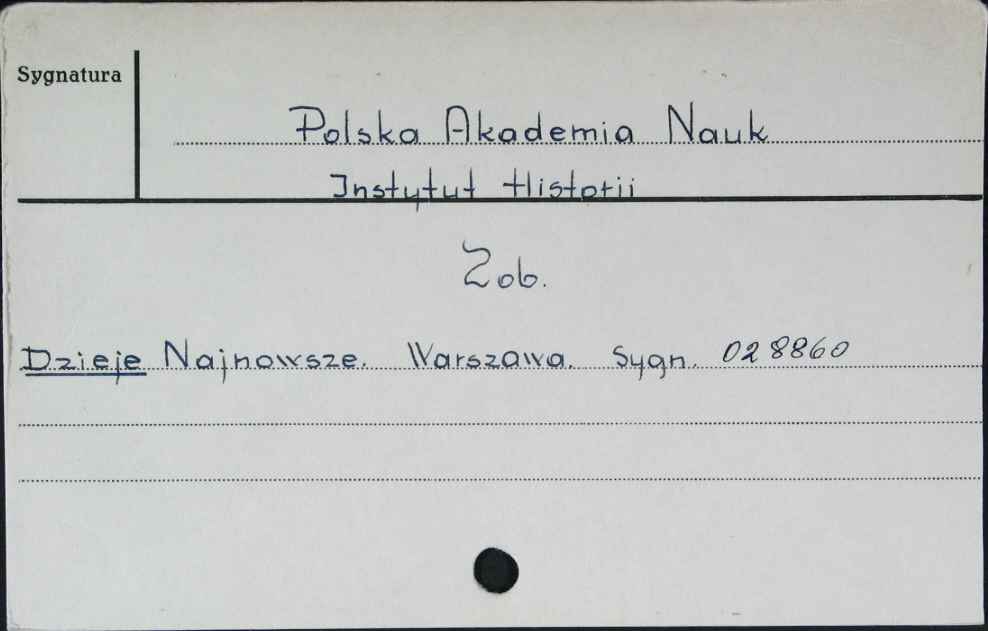 Sygnatura
Polska Akademia Nauk
Instytut Historii
Zob.
Dzieje Najnowsze. Warszawa. Sygn. 028860